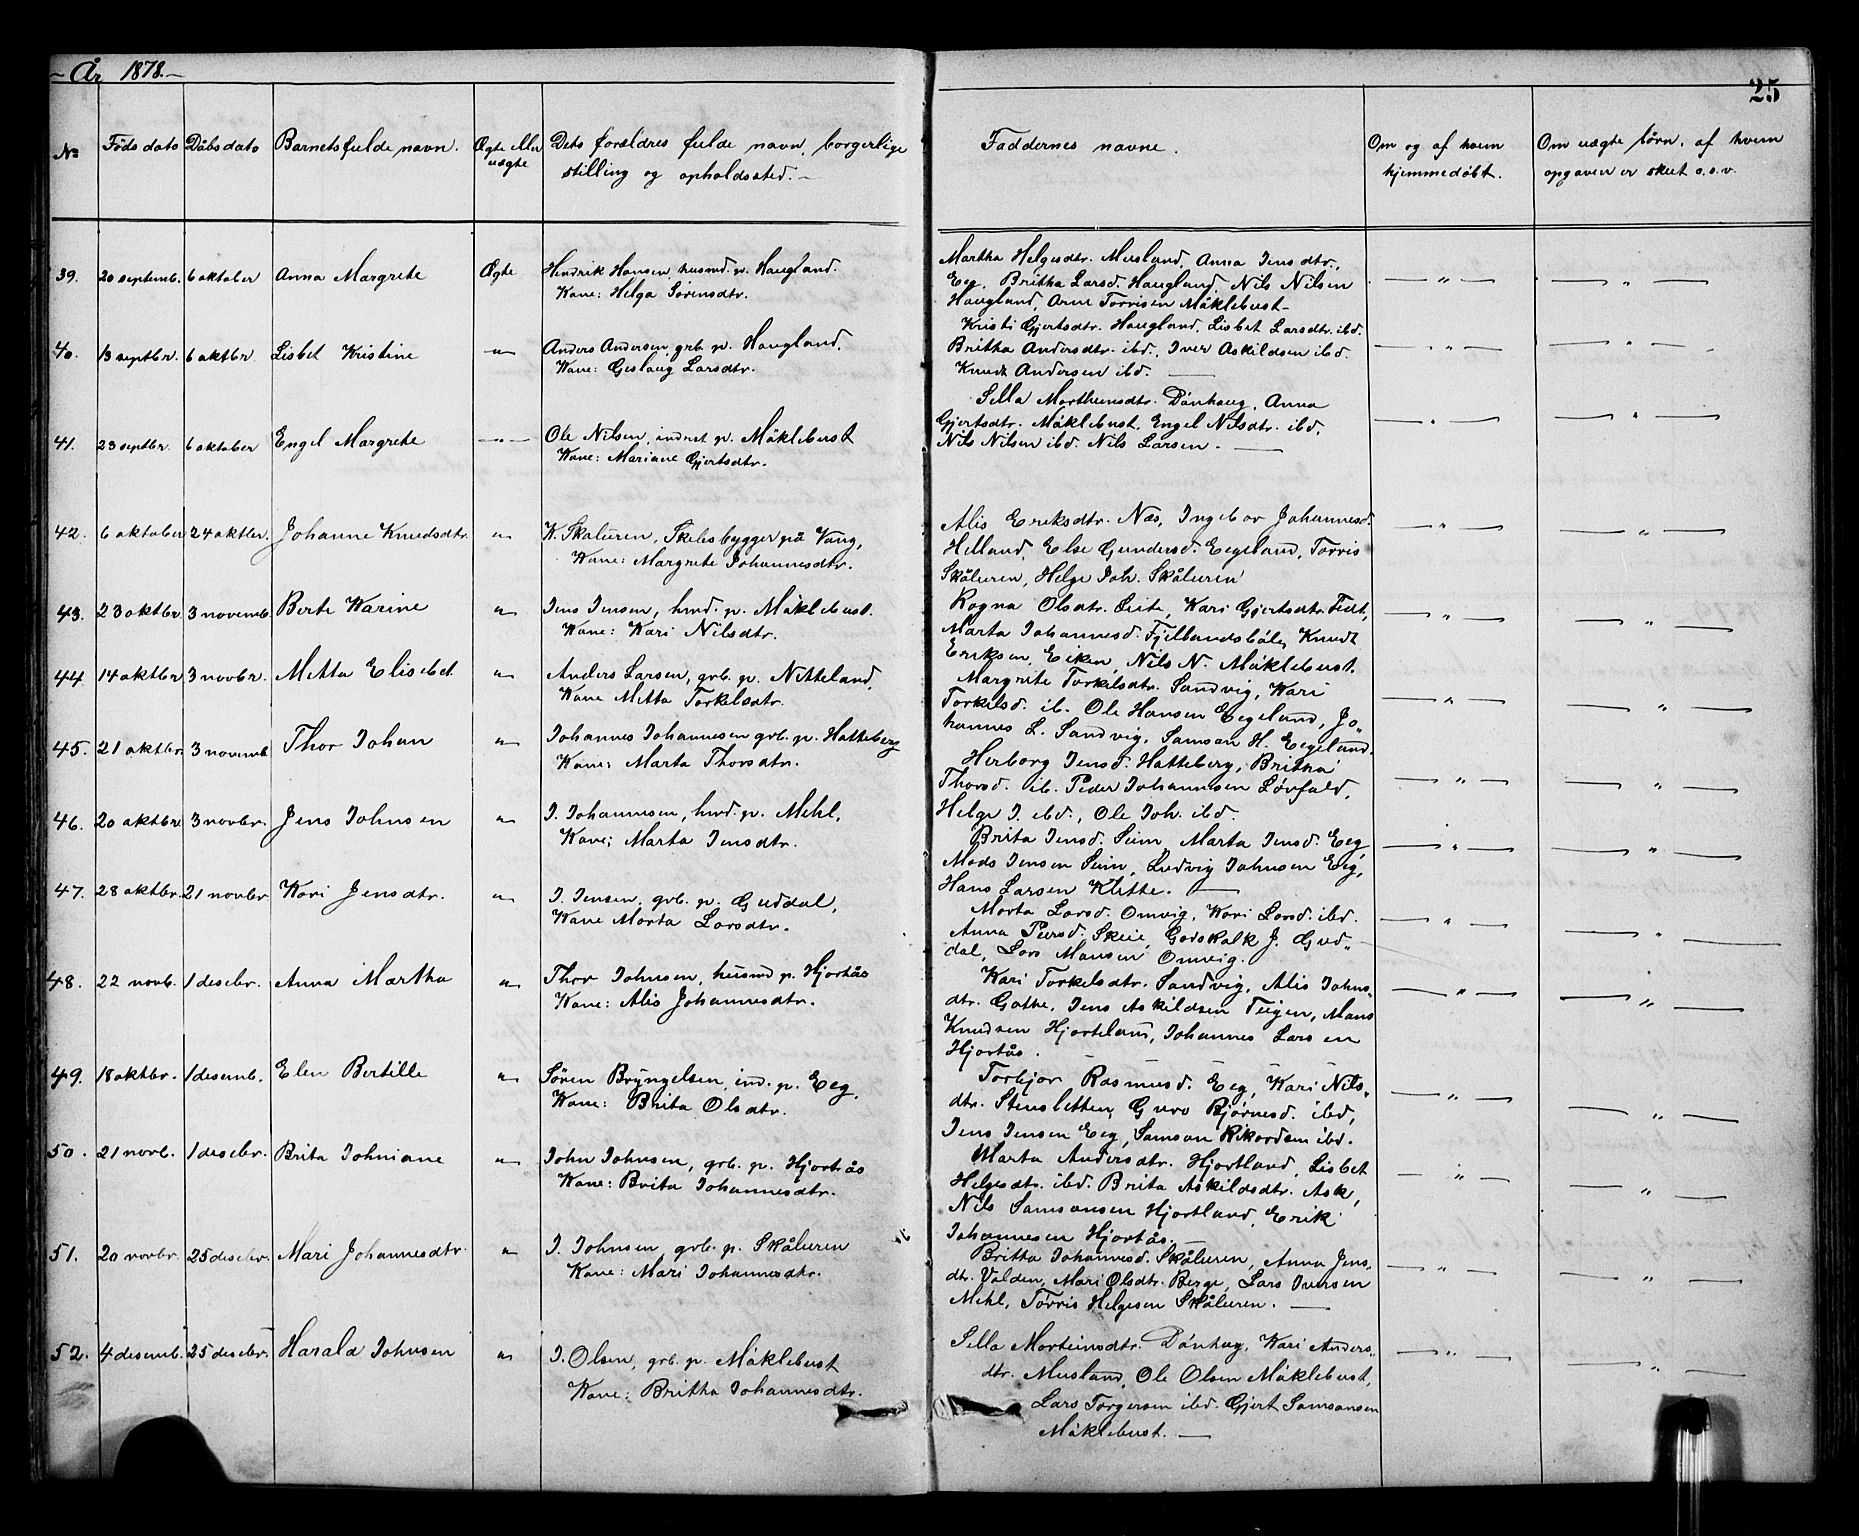 - År 1878. -
25
No
Føds dato
Dåbs dato
Barnets fulde navn.
Ægte eller
uægte
Dets forældres fulde navn, borgerlige
stilling og opholdssted. -
Faddernes navne.
Om og af hvem
hjemmedøbt.
Om uægte børn, af hvem
opgaven er skeet o.s.v.
39. 20 septemb. 6 oktober Anna Margrete Ægte Hendrik Hansen, husmd. p. Haugland.
Kone: Helga Sørensdtr.
Martha Helgesdtr. Musland, Anna Jensdtr.,
Eeg, Britha Larsd. Haugland, Nils Nilsen
Haugland, Arne Torrisen Mäklebust -
40. 13 septbr. 6 oktbr. Lisbet Kristine -"- Anders Andersen, grb. p. Haugland.
Kone: Geslaug Larsdtr.
Kristi Gjertsdtr. Haugland, Lisbet Larsdtr. ibd.
Britha Andersdtr. ibd., Iver Askildsen ibd.
Knudt Andersen ibd. —
41. 23 septbr. 6 oktober Engel Margrete -"- Ole Nilsen, inderst p. Mäklebust
Kone: Mariane Gjertsdtr.
Sella Mortheinsdtr. Dönhaug, Anna
Gjertsdtr. Mäklebust, Engel Nilsdtr. ibd,
Nils Nilsen ibd. Nils Larsen. —
42. 6 oktober 24 oktbr. Johanne Knudsdtr. -"- K. Skaluren, Skibsbygger på Vang,
Kone: Margrete Johannesdtr.
Alis Eriksdtr. Næs, Ingebor Johannesd.
Helland, Else Gundersd. Eegeland, Torris
Skåluren, Helge Joh. Skåluren
43. 23 oktbr. 3 novemb. Berte Karine -"- Jens Jensen, hmd. p. Mäklebust.
Kone: Kari Nilsdtr.
Ragna Olsdtr. Leite, Kari Gjertsdtr. Tedt,
Marta Johannesd. Fjellandsböle, Knudt
Eriksen, Eiken, Nils N. Mäklebust.
44. 14 oktbr. 3 novbr. Metta Elisebet -"- Anders Larsen, grb. p. Netteland,
Kone Metta Torkelsdtr.
Margrete Torkilsdtr. Sandvig, Kari
Torkilsd. ib. Ole Hansen Eegeland, Jo„
hannes L. Sandvig, Samson H. Eegeland.
45. 21 oktbr. 3 novemb. Thor Johan -"- Johannes Johannesen grb. p. Hatteberg
Kone: Marta Thorsdtr.
Herborg Jensd. Hatteberg, Britha
Thorsd. ib. Peder Johannesen Løvfald,
Helge J. ibd., Ole Joh. ibd.
46. 20 oktbr. 3 novbr. Jens Johnsen -"- J. Johannesen, hmd. p. Mehl,
Kone; Marta Jensdtr.
Brita Jensd. Seim, Marta Jensd. Eeg
Mads Jensen Seim, Ludvig Johnsen Eeg,
Hans Larsen Klette. —
47. 28 oktbr. 21 novbr. Kari Jensdtr. -"- J. Jensen, grb. p. Guddal,
Kone Marta Larsdtr.
Marta Larsd. Omvig, Kari Larsd. ibd.
Anna Peersd. Skeie, Godskalk J. Gud„
dal, Lars Monsen Omvig.
48. 22 novb. 1 desebr. Anna Martha -"- Thor Johnsen, husmd p. Hjortås
Kone: Alis Johannesdtr.
Kari Torkelsdtr. Sandvig, Alis Johns„
dtr. Gothe, Jens Askildsen Teigen, Mons
Knudsen Hjorteland, Johannes Larsen
Hjortås.
49. 18 oktbr. 1 desemb. Elen Bertille -"- Sören Bryngelsen, ind. p. Eeg,
Kone: Brita Olsdtr.
Torbjør Rasmusd. Eeg, Kari Nils„
dtr. Stensletten, Guro Bjørnesd. ibd,
Jens Jensen Eeg, Samson Rikardsen ibd.
50. 21 novb. 1 desebr. Brita Johniane -"- John Johnsen, grb. p. Hjortås
Kone: Brita Johannesdtr.
Marta Andersdtr. Hjortland, Lisbet
Helgesdtr. ibd. Brita Askildsdtr. Ask,
Nils Samsonsen Hjortland, Erik
Johannesen Hjortås.
51. 20 novbr. 25 desebr. Mari Johannesdtr. -"- J. Johnsen, grb. p. Skåluren
Kone: Mari Johannesdtr.
Britta Johannesd. Skåluren, Anna Jens„
dtr. Valden, Mari Olsdtr. Berge, Lars Iversen
Mehl, Törris Helgesen Skåluren. —
52. 4 desemb. 25 desebr. Harald Johnsen -"- J. Olsen, grb. p. Mäklebust
Kone: Britha Johannesdtr.
Sella Morteinsdtr. Dönhug, Kari Anders„
dtr. Musland, Ole Olsen Mäklebust,
Lars Torgersen ibd. Gjert Samsonsen
Mäklebust. —